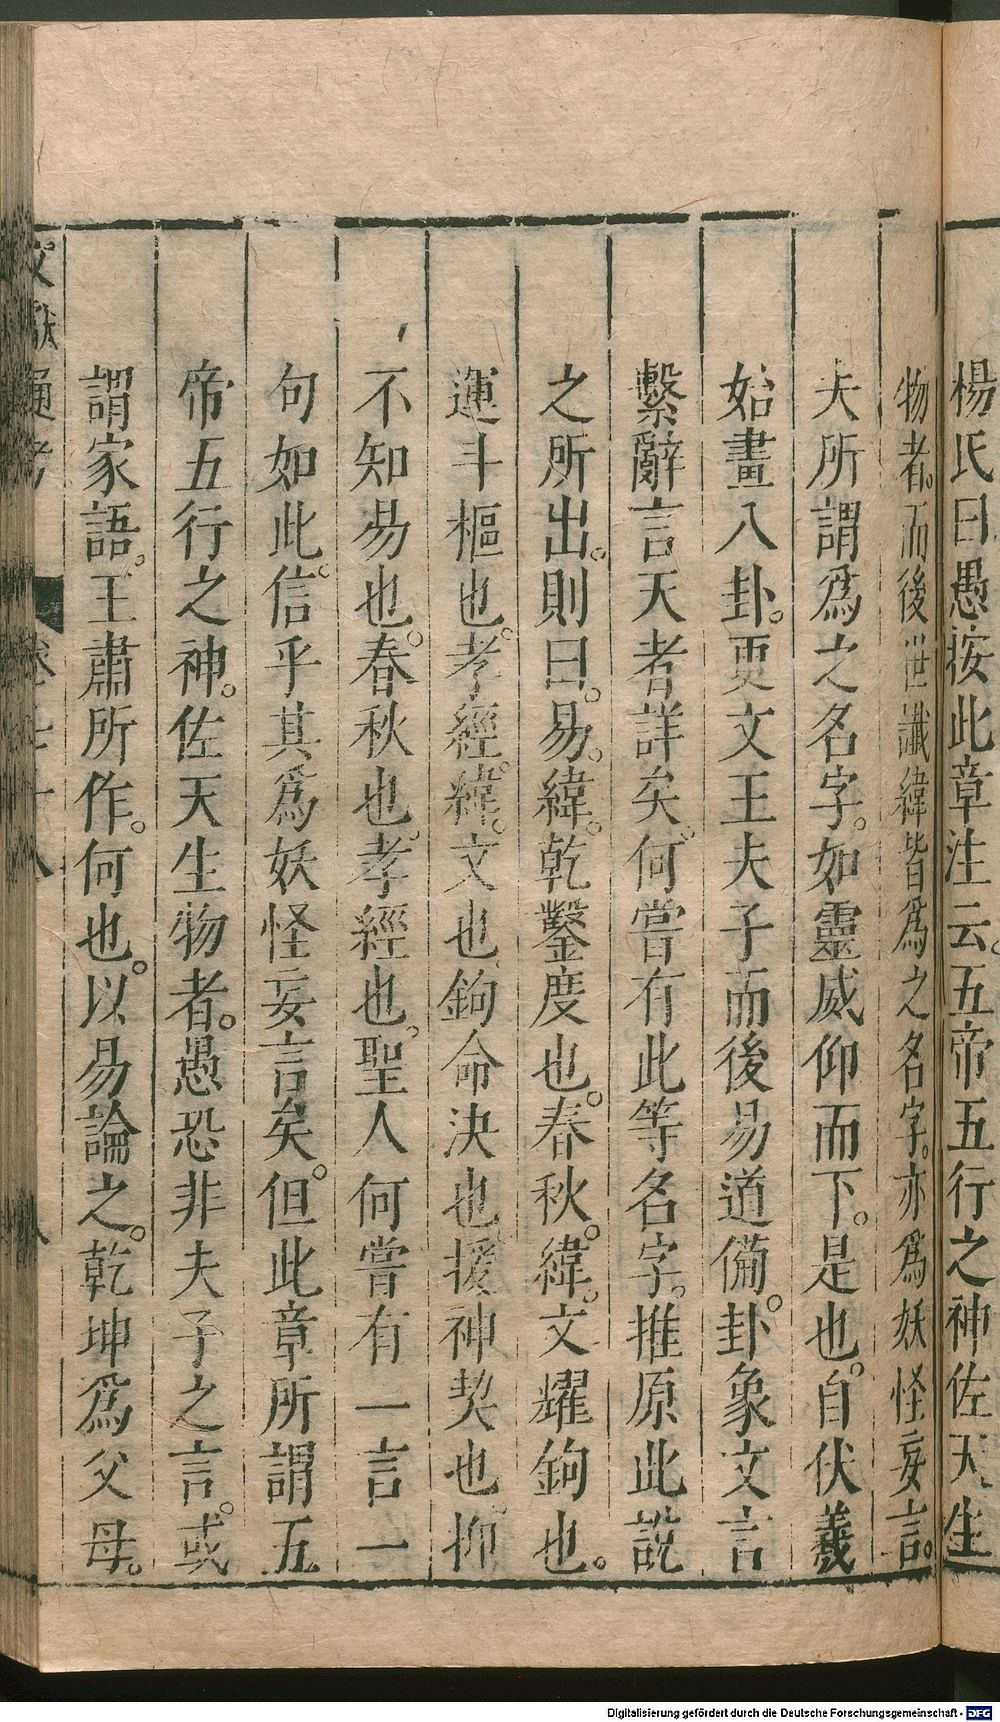 楊氏曰愚按此章注云。五帝五行之神佐天生
物者。而後世讖緯皆爲之名字。亦爲妖怪妄言。
夫所謂爲之名字。如靈威仰而下。是也。自伏羲
始畫八卦。更文王夫子而後易道備。卦象文言
繫辭言天者詳矣。何嘗有此等名字。推原此說
之所出。則曰。易。緯。乾鑿度也。春秋。緯。文耀鉤也。
運斗樞也。孝經。緯。文也鉤命決也。援神契也。抑
不知易也。春秋也。孝經也。聖人何嘗有一言一
句如此。信乎其爲妖怪妄言矣。但此章所謂五
帝五行之神。佐天生物者。愚恐非夫子之言。或
謂家語。王肅所作。何也。以易論之。乾坤爲父母。
文獻通考 卷七十八 八
Digitalisierung gefördert durch die Deutsche Forschungsgemeinschaft - DFG